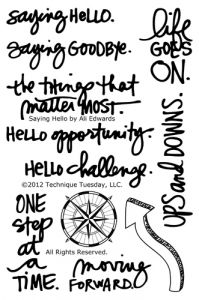 saying HELLO.
saying GOODBYE.
the things that
matter MOST.
Saying Hello by Ali Edwards
HELLO opportunity.
HELLO challenge.
©2012 Technique Tuesday, LLC.
life
GOES
ON.
UPS and DOWNS.
ONE
step
at
a
TIME.
All Rights Reserved.
moving
FORWARD.